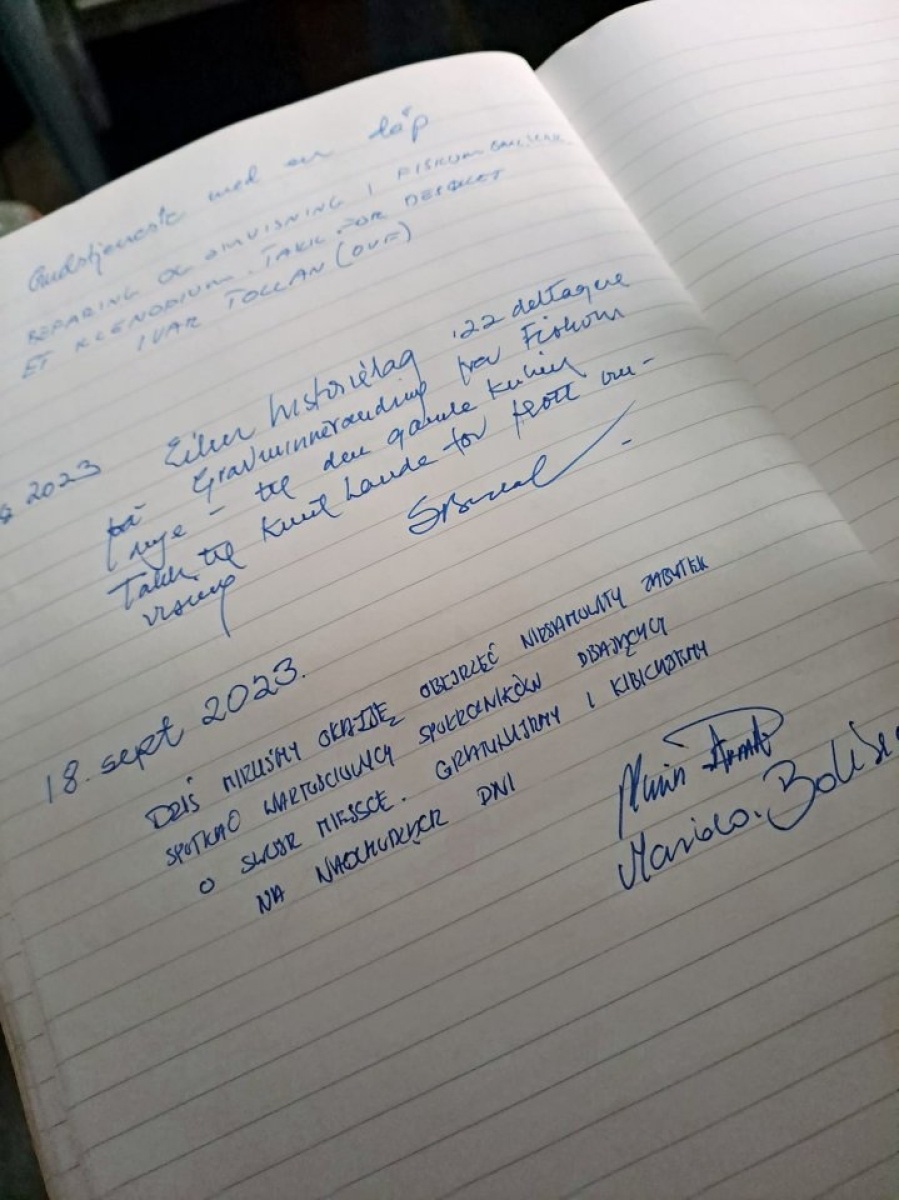 Gudstjeneste med en dåp
BEFARING OG OMVISNING I FISKUM GML. KIRKE
ET KLENODIUM. TAKK FOR BESØKET
IVAR TOLLAN (OVF)
2023 Eiker historielag 22 deltagere
på Gravminnevandring fra Fiskum
nye - til den gamle kirken
Takk til Knut Lande for flott om-
visning
18. sept 2023.
DZIŚ MIELIŚMY OKAZJĘ OBEJRZEĆ NIESAMOWITY ZABYTEK
SPOTKAĆ WARTOŚCIOWYCH DBAJĄCYCH
O SWOJE MIEJSCE. GRATULUJEMY I KIBICUJEMY
NA DNI